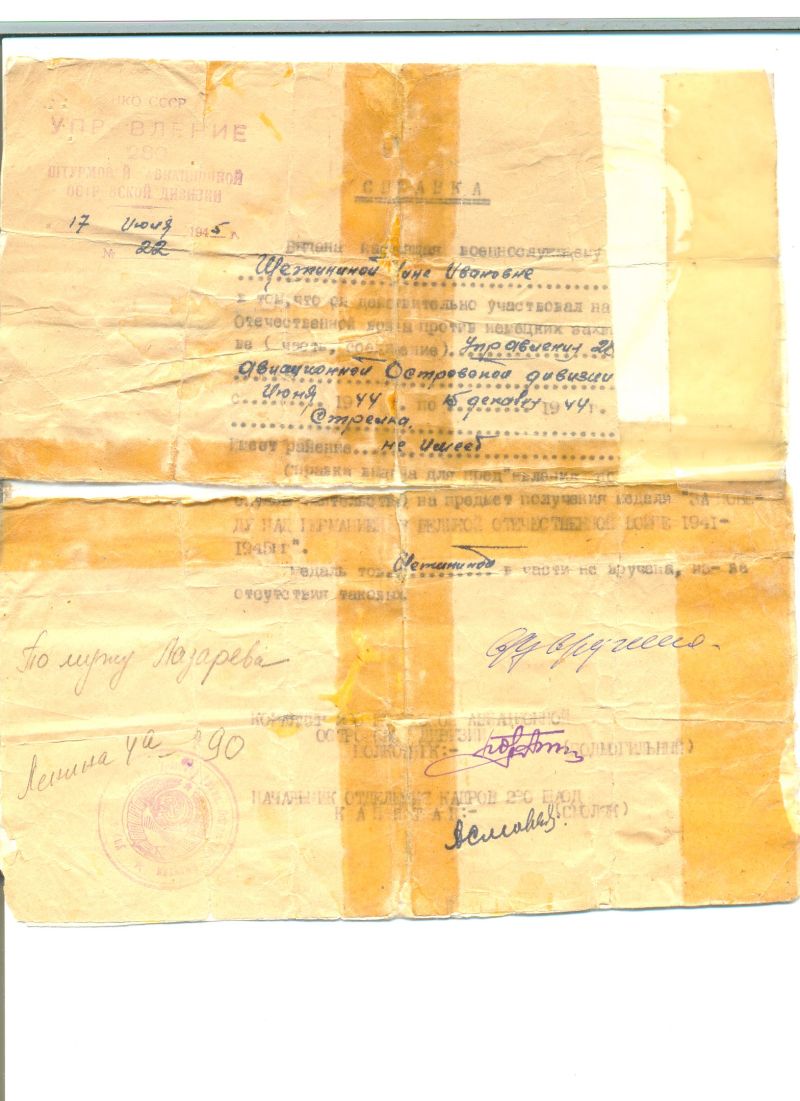 НКО СССР
УПРАВЛЕНИЕ
280
ШТУРМОВОЙ АВИАЦИОННОЙ
ОСТРОВСКОЙ ДИВИЗИИ
17 июля 1945 г.
№ 22
СПРАВКА
Выдана настоящая военнослужащему
Щетининой Ивановне
в том, что он действительно участвовал на
Отечественной войне против немецких захв
ва (часть, соединение). Управления
авиационной Островской дивизии
с июня 1944 г. по 15 декабря 1944 г.
Стрелка.
Имеет ранение... не имеет
(Справка выдана для пред"явления по
на предмет получения медали "ЗА ПОБЕ-
ДУ НАД ГЕРМАНИЕЙ В ВЕЛИКОЙ ОТЕЧЕСТВЕННОЙ ВОЙНЕ 1941-
1945гг".
Медаль тов. Щетининой в части не вручена, из-за
отсутствия таковых.
По мужу Лазарева
АВИАЦИОННОЙ
ОСТРОВСКОЙ ДИВИЗИИ
ПОЛКОВНИК:- (ПОДМОГИЛЬНЫЙ)
Ленина 4а
90
НАЧАЛЬНИК ОТДЕЛЕНИЯ КАДРОВ 280 ШАОД
КАПИТАН:-